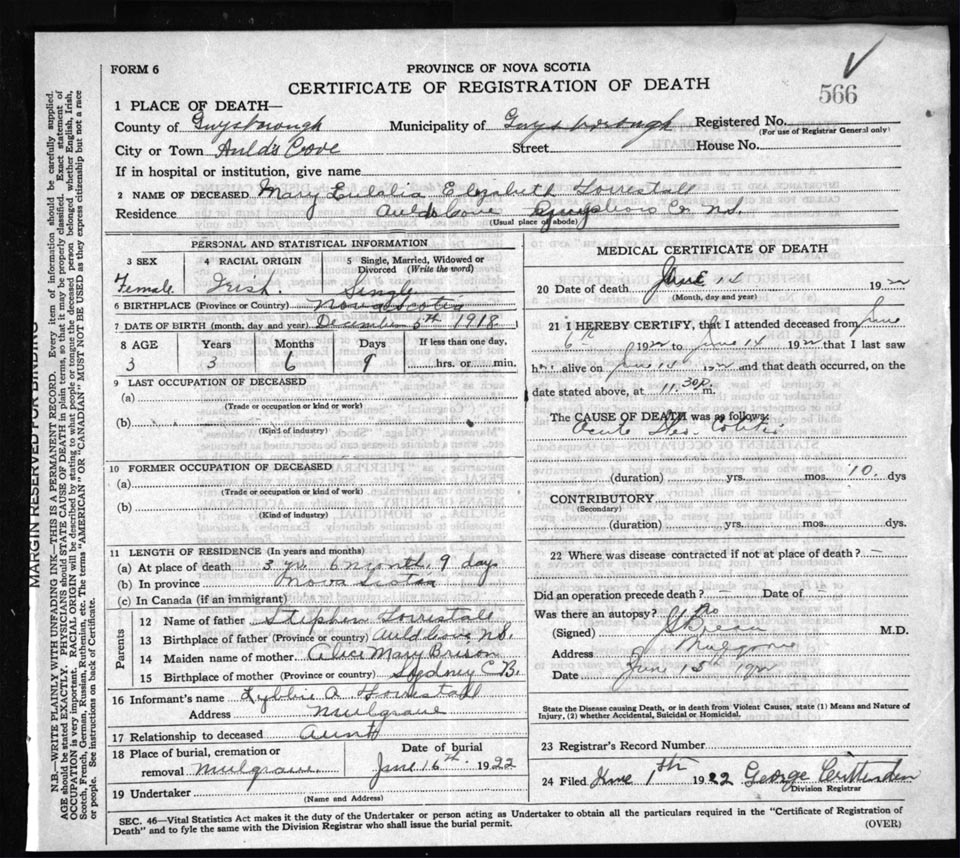 FORM 6
PROVINCE OF NOVA SCOTIA
CERTIFICATE OF REGISTRATION OF DEATH
566
1 PLACE OF DEATH—
County of Guysborough Municipality of Guysborough Registered No.
(For use of Registrar General only)
City or Town Aulds Cove Street House No.
If in hospital or institution, give name
2 NAME OF DECEASED Mary Eulalia Elizabeth Forrestall
Residence Aulds Cove Guysboro Co. N.S.
(Usual place of abode)
PERSONAL AND STATISTICAL INFORMATION
3 SEX 4 RACIAL ORIGIN 5 Single, Married, Widowed or Divorced (Write the word)
Female Irish Single
6 BIRTHPLACE (Province or Country) Nova Scotia
7 DATE OF BIRTH (month, day and year) December 5th 1918
8 AGE Years Months Days If less than one day,
3 3 6 9 hrs. or min.
9 LAST OCCUPATION OF DECEASED
(a)
(Trade or occupation or kind or work)
(b)
(Kind of industry)
10 FORMER OCCUPATION OF DECEASED
(a)
(Trade or occupation or kind or work)
(b)
(Kind of industry)
11 LENGTH OF RESIDENCE (In years and months)
(a) At place of death 3 yr. 6 month, 9 days
(b) In province Nova Scotia
(c) In Canada (if an immigrant)
Parents
12 Name of father Stephen Forrestall
13 Birthplace of father (Province or country) Auld Cove N.S.
14 Maiden name of mother Alice Mary Brison
15 Birthplace of mother (Province or country) Sydney C.B.
16 Informant's name Lybbie A Forrestall
Address Mulgrave
17 Relationship to deceased Aunt
18 Place of burial, cremation or Date of burial
removal Mulgrave. June 16th. 1922
19 Undertaker
(Name and Address)
MEDICAL CERTIFICATE OF DEATH
20 Date of death June 14 1922
(Month, day and year)
21 I HEREBY CERTIFY, that I attended deceased from June
6th 1922 to June 14 1922 that I last saw
h alive on June 14 1922 and that death occurred, on the
date stated above, at 11.30 p. m.
The CAUSE OF DEATH was as follows:
Acute Colitis
(duration) yrs. mos. 10. dys
CONTRIBUTORY
(Secondary)
(duration) yrs. mos. dys.
22 Where was disease contracted if not at place of death? —
Did an operation precede death? — Date of —
Was there an autopsy? No
(Signed) M.D.
Address Mulgrave
Date June 15 1922
State the Disease causing Death, or in death from Violent Causes, state (1) Means and Nature of
Injury, (2) whether Accidental, Suicidal or Homicidal.
23 Registrar's Record Number
24 Filed June 1922 George Crittenden
Division Registrar
SEC. 46—Vital Statistics Act makes it the duty of the Undertaker or person acting as Undertaker to obtain all the particulars required in the "Certificate of Registration of
Death" and to fyle the same with the Division Registrar who shall issue the burial permit.
(OVER)
MARGIN RESERVED FOR BINDING
N.B.—WRITE PLAINLY WITH UNFADING INK—THIS IS A PERMANENT RECORD. Every item of information should be carefully supplied.
AGE should be stated EXACTLY. PHYSICIANS should STATE CAUSE OF DEATH in plain terms, so that it may be properly classified. Exact statement of
OCCUPATION is very important. RACIAL ORIGIN will be described by stating to what people or tongue the deceased person belonged whether English, Irish,
Scotch, French, German, Russian, Ruthenian, etc. The terms "AMERICAN" OR "CANADIAN" MUST NOT BE USED as they express citizenship but not a race
or people. See instructions on back of Certificate.